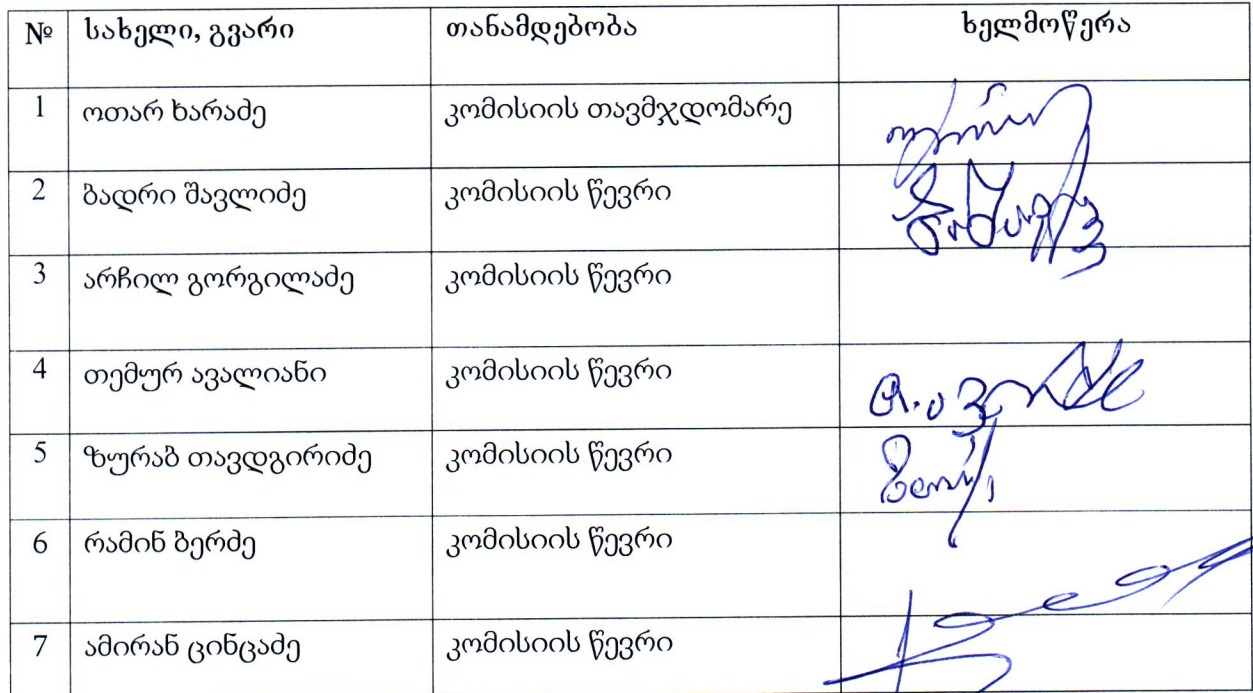 № სახელი, გვარი თანამდებობა ხელმოწერა
1 ოთარ ხარაძე კომისიის თავმჯდომარე
2 ბადრი შავლიძე კომისიის წევრი
3 არჩილ გორგილაძე კომისიის წევრი
4 თემურ ავალიანი კომისიის წევრი
5 ზურაბ თავდგირიძე კომისიის წევრი
6 რამინ ბერძე კომისიის წევრი
7 ამირან ცინცაძე კომისიის წევრი